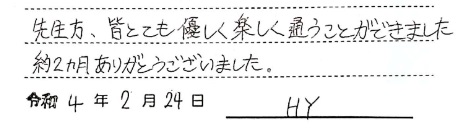 先生方、皆とても優しく楽しく通うことができました
約2カ月ありがとうございました。
令和 4 年 2 月 24 日 HY